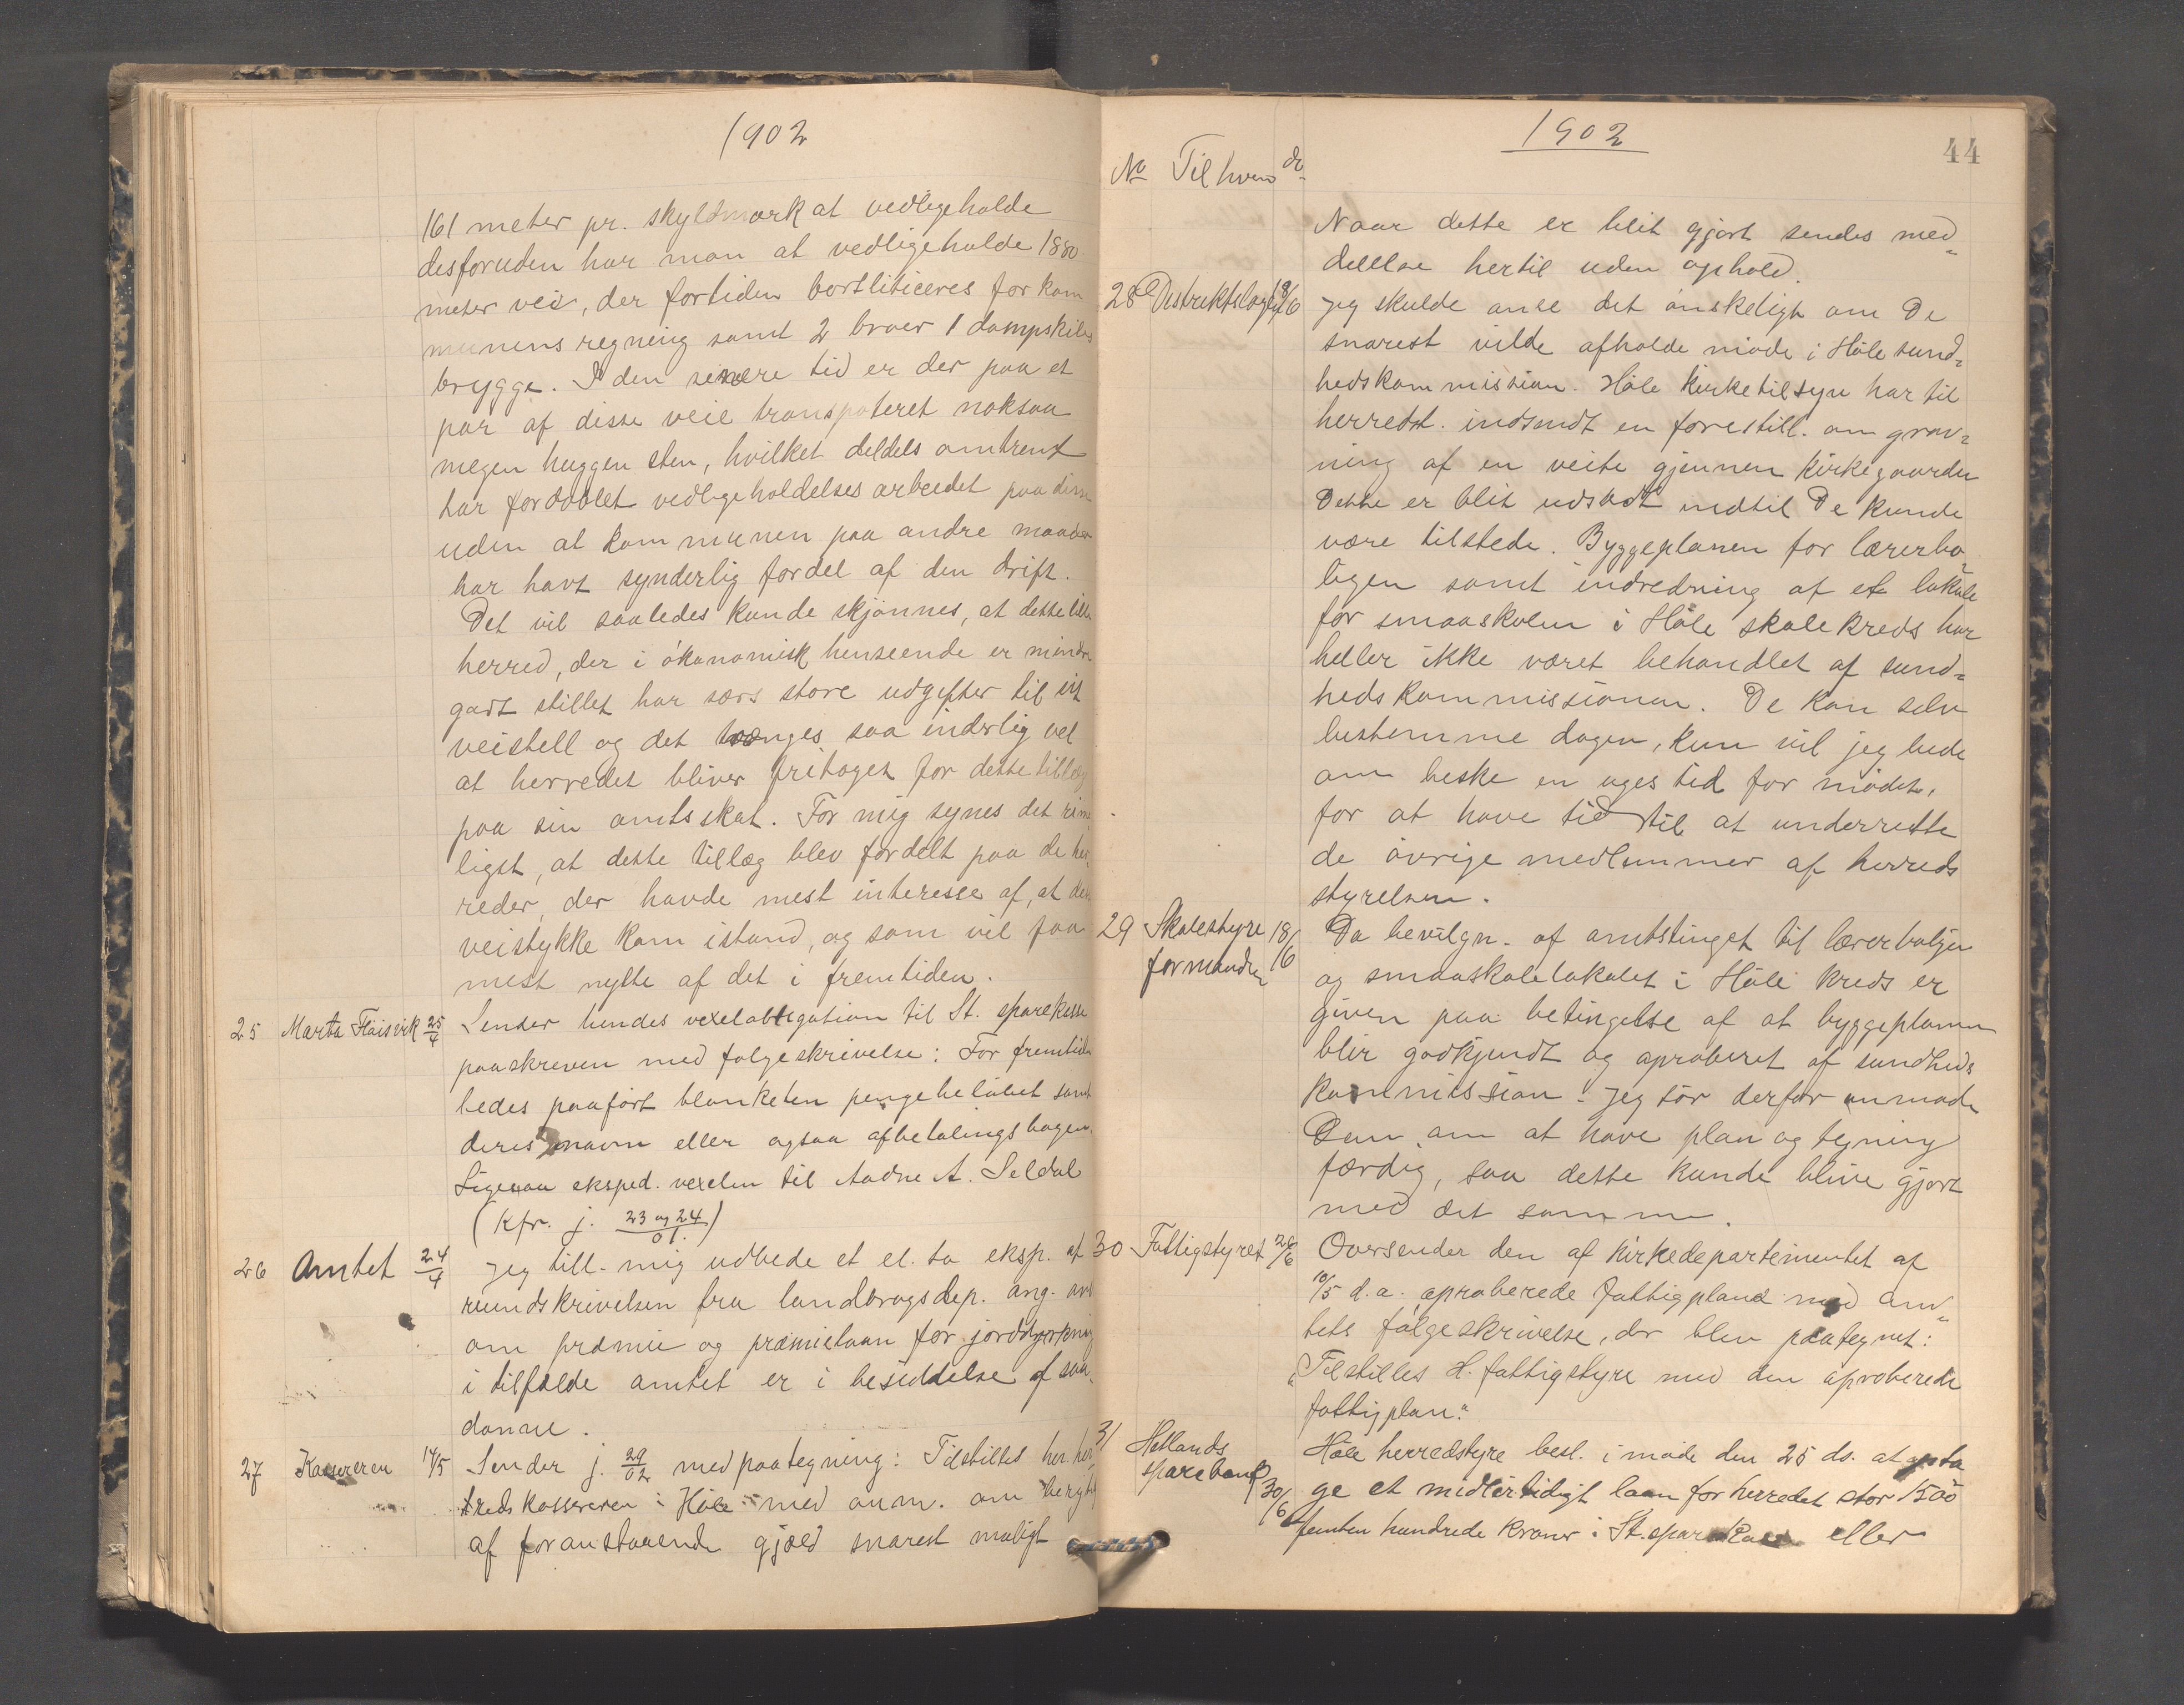 1902
161 meter pr. skyldmark at vedligeholde
desforuden har man at vedligeholde 1880
meter vei, der fortiden bortliticeres for kom
munens regning samt 2 broer 1 dampskibs
brygge. I den senere tid er der paa et
par af disse veie transpoteret noksaa
megen huggen sten, hvilket deldels omtrent
har fordoblet vedligeholdelses arbeidet paa disse
uden at kommunen paa andre maader
har havt synderlig fordel af den drift.
Det vil saaledes kunde skjønnes, at dette lille
herred, der i økonomisk henseende er mindre
godt stillet har særs store udgifter til sit
veistell og det trænges saa inderlig vel
at herredet bliver fritaget for dette tillæg
paa sin amtsskat. For mig synes det rime
ligst, at dette tillæg blev fordelt paa de her,
reder, der havde mest interesse af, at det
veistykke kom istand, og som vil faa
mest nytte af det i fremtiden.
25 Marta Fløisvik 25/4 Sender hendes vexelobligation til St. sparekasse
paaskreven med følgeskrivelse: For fremtiden
bedes paaført blanketen pengebeløbet samt
deres navn eller ogsaa afbetalingsbogen.
Ligesaa eksped. vexelen til Aadne A. Seldal
(Kfr. j. 23 og 24/01.)
26 Amtet 24/4 Jeg till. mig udbede et el. to eksp. af
rundskrivelsen fra landbrugsdep. ang. ans
om præmie og præmielaan for jorddyrkning
i tilfælde amtet er i besiddelse af saa
danne.
27 Kassereren 14/5 Sender j. 29/02 med paategning: Tilstilles hr. her
redskassereren i Høle med anm. om berigt
af foranstaaende gjæld snarest muligt
1902
44
No Til hvem do
Naar dette er blit gjort sendes med
delelse hertil uden ophold.
28 Distriktslægen 18/6 Jeg skulde anse det ønskeligt om De
snarest vilde afholde møde i Høle sund=
hedskommission. Høle kirketilsyn har til
herredst. indsendt en forestill. om grav=
ning af en veite gjennem kirkegaarden
Dette er blit udsadt indtil De kunde
være tilstede. Byggeplanen for lærerbo
ligen samt indredning af et lokale
for smaaskolen i Høle skolekreds har
heller ikke været behandlet af sund=
hedskommissionen. De kan selv
bestemme dagen, kun vil jeg bede
om beske en uges tid før mødet,
for at have tid til at underrette
de øvrige medlemmer af herreds
styrelsen.
29 Skolestyre 18/6 Da bevilgn. af amtstinget til lærerboligen
formanden og smaaskolelokalet i Høle kreds er
given paa betingelse af at byggeplanen
blir godkjendt og aproberet af sundheds
kommission. Jeg tør derfor anmode
Dem om at have plan og tegning
færdig, saa dette kunde blive gjort
med det samme.
30 Fattigstyret 26/6 Oversender den af kirkedepartementet af
10/5 d.a. aproberede fattigplan med am
tets følgeskrivelse, der blev paategnet:
"Tilstilles H. fattigstyre med den aproberede
fattigplan."
31 Hetlands Høle herredstyre besl. i møde den 25 ds. at opta
sparebank 30/6 ge et midlertidigt laan for herredet stor 1500
femten hundrede kroner i St. sparekasse eller